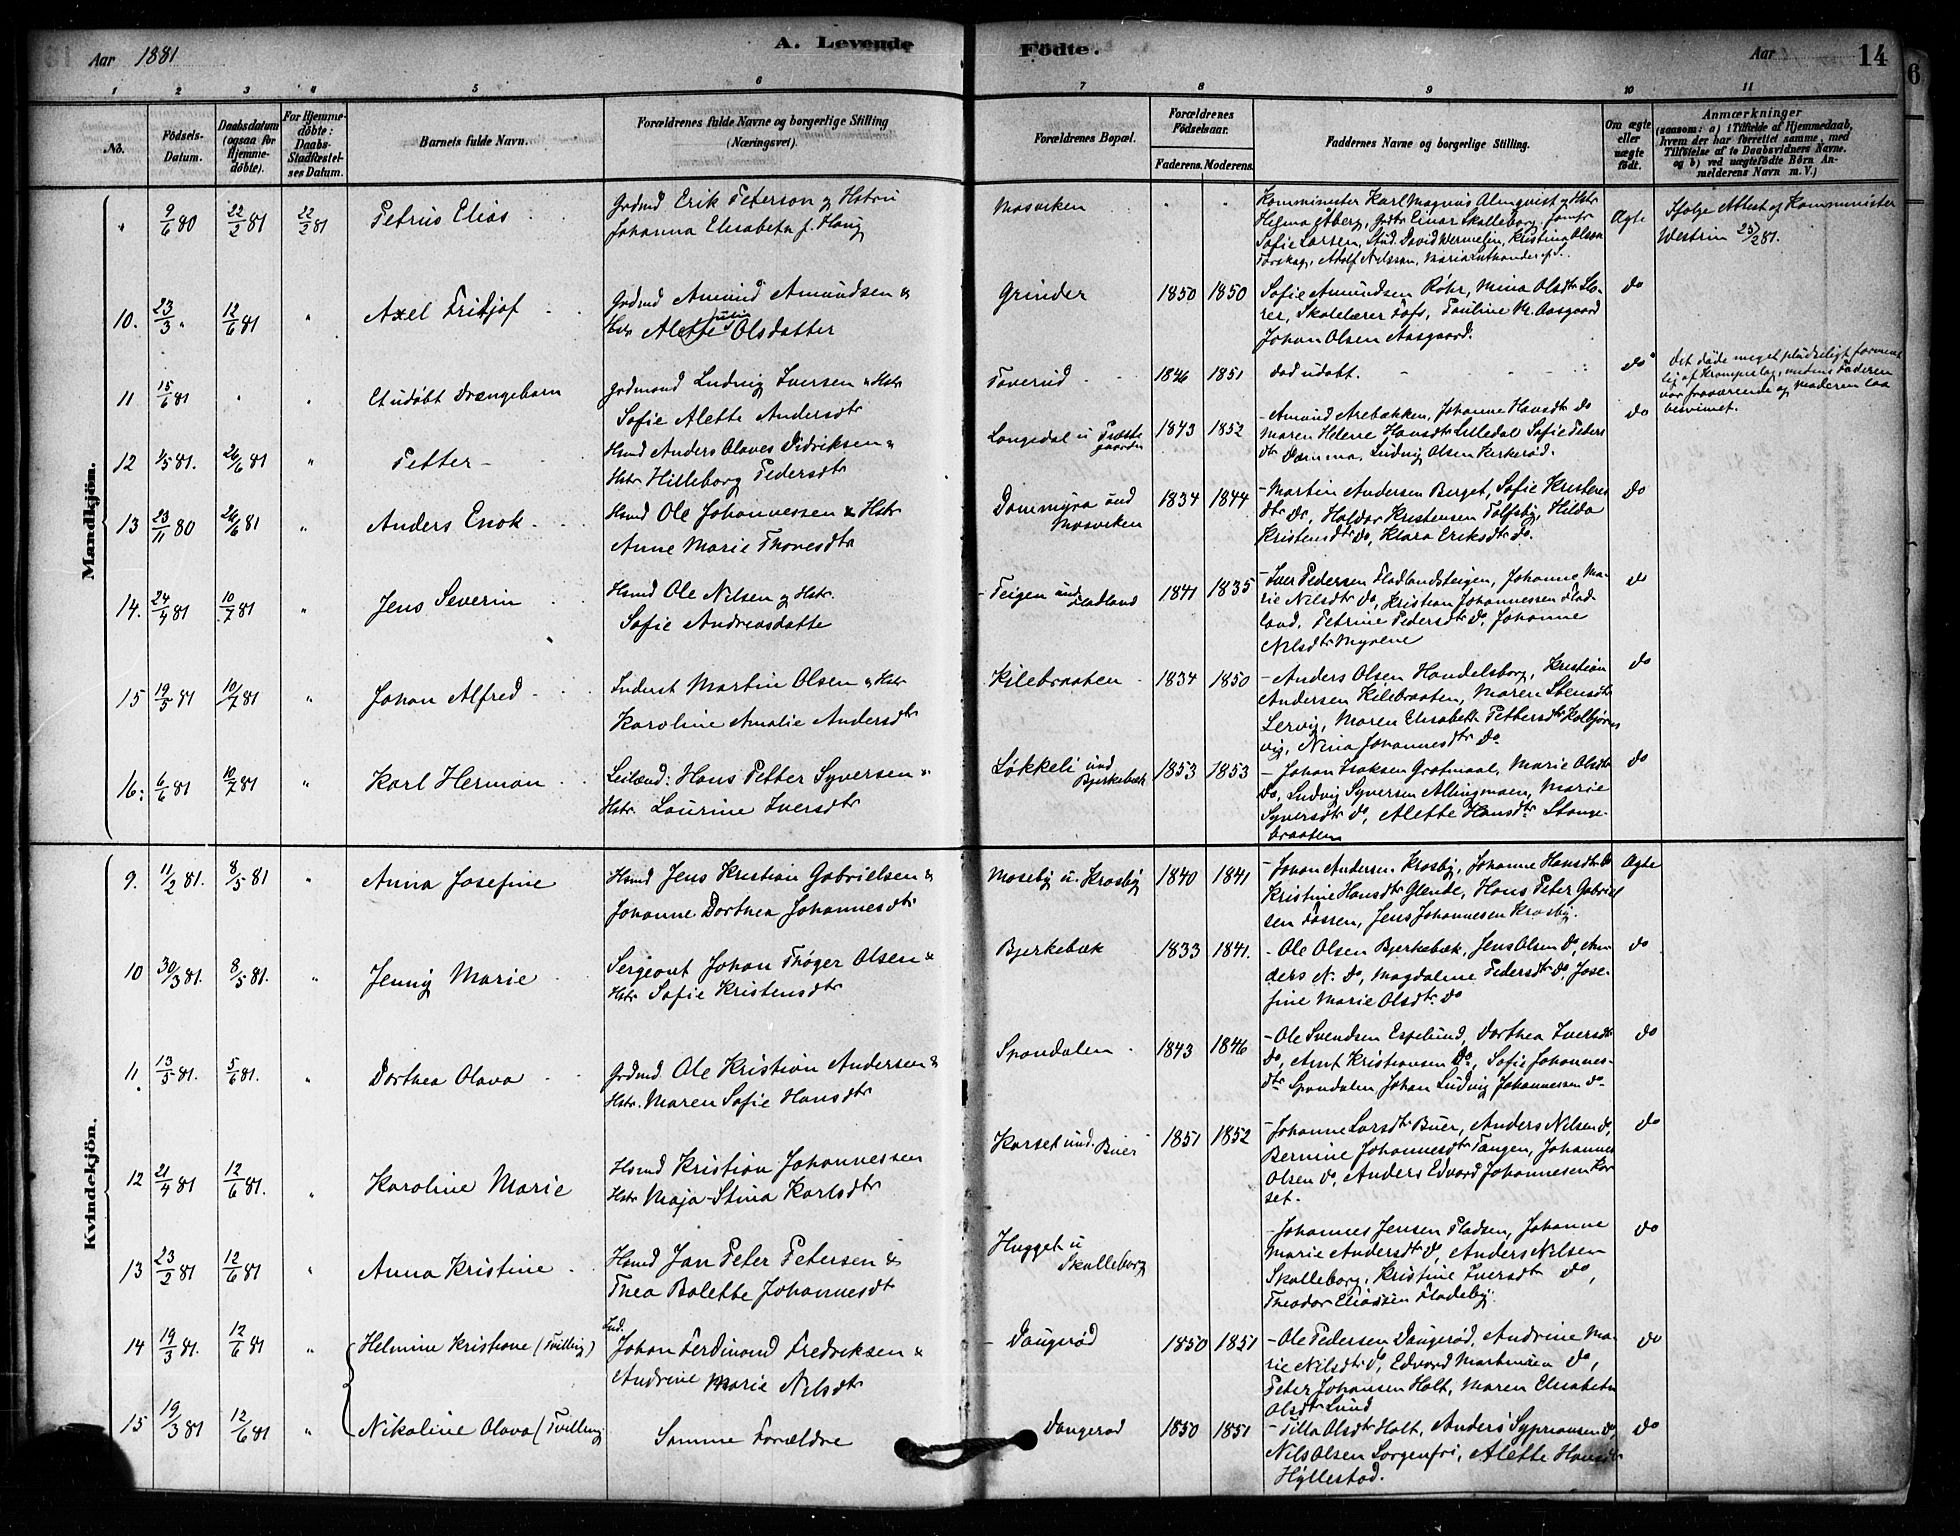 Aar 1881
A. Levende Födte.
Aar
14
6
1 2 3 4 5 6 7 8 9 10 11
No.
Födsels-Datum.
Daabsdatum (ogsaa for Hjemme-döbte).
For Hjemme-döbte: Daabs-Stadfæstel-ses Datum.
Barnets fulde Navn.
Forældrenes fulde Navne og borgerlige Stilling (Næringsvei).
Forældrenes Bopæl.
Forældrenes Födselsaar.
Faderens. Moderens.
Faddernes Navne og borgerlige Stilling.
Om ægte eller uægte födt.
Anmærkninger
(saasom: a) i Tilfælde af Hjemmedaab,
hvem der har forrettet samme, med
Tilföielse af to Daabsvidners Navne.
og b) ved uægtefödte Börn An-
melderens Navn m. V.)
Mandkjön.
" 9/6 80 22/2 81 22/2 81 Petrus Elias
Grdmd Erik Peterson og Hstru
Johanna Elisabeth f. Haug
Mosviken
Komminister Karl Magnus Almqvist og Hstr
Sofie Larsen, Stud. David Wermelin, Kristina Olson
Torskog, Adolf Nilsson,
Ægte
Ifølge Attest af Komminister
Westrin 25/2 81.
10. 23/3 " 12/6 81 " Axel Fritjof
Grdmd Amund Amundsen &
Hstr Alette Julie Olsdatter
Grinder 1850 1850
Sofie Amundsen Röhr, Mina Olsdtr Lö-
rer, Skolelærer Fofs, Pauline M. Aasgaard
Johan Olsen Aasgaard.
do
11 15/6 81 " " Et udøbt Drængebarn
Grdmand Ludvig Iversen & Hstr
Sofie Alette Andersdtr
Toverud 1846 1851
død udøbt.
do
Det døde meget pludseligt forment-
lig af Krampeslag, medens Faderen
var fraværende og Moderen laa
besvimet.
12 1/5 81. 26/6 81 " Petter
Hsmd Anders Olaves Didriksen &
Hstr Hilleborg Pedersdtr
Langedal u Præste-
gaarden 1843 1852
- Amund Arebækken, Johanne Hansdtr do
Maren Helene Hansdtr Lilledal Sofie Peders
dtr Damma, Ludvig Olsen Kerkerød.
do
13 23/11 80 26/6 81 " Anders Enok
Hsmd Ole Johannessen & Hstr
Anne Marie Thoresdtr
Dammyra und
Mosviken 1834 1844
- Martin Andersen Berget, Sofie Kristens
dtr do, Haldor Kristensen Tolfsby, Hilda
Kristensdtr do, Klara Eriksdtr do.
do
14. 24/4 81 10/7 81 " Jens Severin
Hsmd Ole Nilsen og Hstr.
Sofie Andreasdatte
- Teigen und
Fladland 1841 1835
- Iver Pedersen Fladlandsteigen, Johanne Ma-
rie Nilsdtr do, Kristian Johannessen Flad-
land, Petrine Pedersdtr do, Johanne
Nilsdtr Myrene
do
15 19/5 81 10/7 81 " Johan Alfred
Inderst Martin Olsen & Hstr
Karoline Amalie Andersdtr
Kilebraaten 1834 1850
- Anders Olsen Handelsborg, Kristian
Andersen Kilebraaten, Maren Stensdtr
Lervig, Maren Elisabeth Pettersdtr Kolbjørns
vig, Nina Johannesdtr do
do
16: 6/6 81 10/7 81 " Karl Herman
Leilænd: Hans Petter Syversen &
Hstr. Laurine Iversdtr
Løkkeli und
Bjerkebæk 1853 1853
- Johan Isaksen Gratmaal, Marie Olsdtr
do, Ludvig Syversen Allingmoen, Marie
Syversdtr do, Alette Hansdtr Stange-
braaten
do
Kvindekjön.
9. 11/2 81. 8/5 81 " Anna Josefine
Hsmd Jens Kristian Gabrielsen &
Johanne Dorthea Johannesdtr
Moseby u. Krosby 1840 1841
- Johan Andersen Krosby, Johanne Hansdtr do
Kristine Hansdtr Glende, Hans Peter Gabriel
sen Fossen, Jens Johannesen Krosby.
Ægte
10 30/3 81. 8/5 81. " Jenny Marie
Sergeant Johan Thøger Olsen &
Hstr Sofie Kristensdtr
Bjerkebæk 1833 1841.
- Ole Olsen Bjerkebæk, Jens Olsen do, An-
ders N. do, Magdalene Pedersdtr do, Jose-
fine Marie Olsdtr do
do
11. 13/5 81. 5/6 81. " Dorthea Olava
Grdmd Ole Kristian Andersen &
Hstr. Maren Sofie Hansdtr
Spondalen 1843 1846
- Ole Svendsen Espelund, Dorthea Iversdtr
do, Amt Kristiansen do, Sofie Johannes-
dtr Spondalen Johan Ludvig Johannessen do
do
12 21/4 81 12/6 81. " Karoline Marie
Hsmd Kristian Johannessen
Hstr Maja-Stina Karlsdtr
Korset und. Buer 1851 1852
- Johanne Larsdtr Buer, Anders Nilsen do,
Bernine Johannesdtr Tangen, Johannes
Olsen do, Anders Edvard Johannesen Kor
set.
do
13 23/2 81 12/6 81 " Anna Kristine
Hsmd Jan Peter Petersen &
Thea Bolette Johannesdt
Hugget u
Skolleborg
- Johannes Jensen Pladsen, Johanne
Marie Andersdtr do, Anders Nilsen
Skolleborg, Kristine Iversdtr do,
Theodor Eliassen Fladeby.
do
14 19/3 81. 12/6 81 " Helmine Kristiane (Tvilling)
Ind.
Johan Ferdinand Fredriksen &
Andrine Marie Nilsdtr
- Daugerød 1850 1851
- Ole Pedersen Daugerød, Andrine Ma-
rie Nilsdtr do, Edvard Martinsen do,
Peter Johansen Holt, Maren Elisabeth
Olsdtr Lund
do
15 19/3 81 12/6 81 " Nikoline Olava (Tvilling
Samme Forældre
Daugerød 1850 1851
- Tilla Olsdtr Holt, Anders Sypriansen do,
Nils Olsen Sorgenfri, Alette Hansdtr
Hyllestad.
do